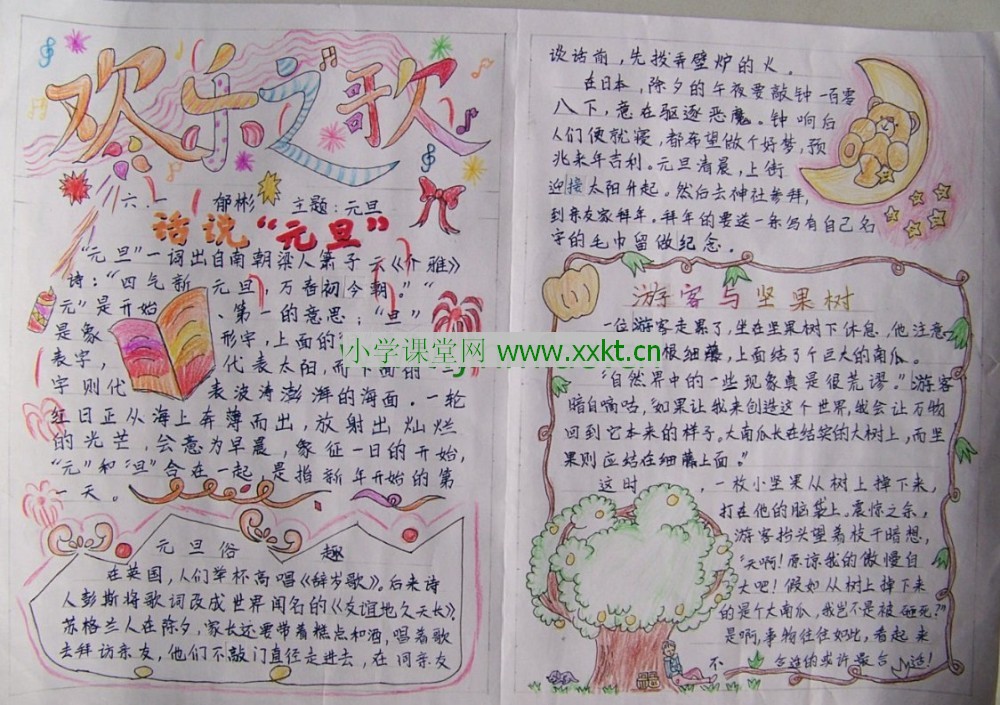 欢乐之歌
六. 郁彬 主题:元旦
话说“元旦”
“元旦”一词出自南朝梁人萧子云《介雅》
诗:“四气新元旦,万寿初今朝。”“
元”是开始、第一的意思;“旦”
是象形字,上面的“
表字, 代表太阳,而下面的“一”
字则代表波涛澎湃的海面。一轮
红日正从海上奔薄而出,放射出灿烂
的光芒,会意为早晨,象征一日的开始,
“元”和“旦”合在一起,是指新年开始的第
一天。
元旦俗趣
在英国,人们举杯高唱《辞岁歌》。后来诗
人彭斯将歌词改成世界闻名的《友谊地久天长》。
苏格兰人在除夕,家长还要带着糕点和酒,唱着歌
去拜访亲友,他们不敲门直径走进去,在同亲友
谈话前,先拨弄壁炉的火。
在日本,除夕的午夜要敲钟一百零
八下,意在驱逐恶魔。钟响后
人们便就寝,都希望做个好梦,预
兆来年吉利。元旦清晨,上街
迎接太阳升起。然后去神社参拜,
到亲友家拜年。拜年的要送一条写有自己名
字的毛巾留做纪念。
游客与坚果树
一位游客走累了,坐在坚果树下休息,他注意
很细藤,上面结了个巨大的南瓜。
“自然界中的一些现象真是很荒谬。”游客
暗自嘀咕,“如果让我来创造这个世界,我会让万物
回到它本来的样子。大南瓜长在结实的大树上,而坚
果则应结在细藤上面。”
这时,一枚小坚果从树上掉下来,
打在他的脑袋上。震惊之余,
游客抬头望着枝干暗想,
“天啊!原谅我的傲慢自
大吧!假如从树上掉下来
的是个大南瓜,我岂不是被砸死?”
是啊,事物往往如此,看起来
不合适的或许最合适!
小学课堂网 www.xxkt.cn